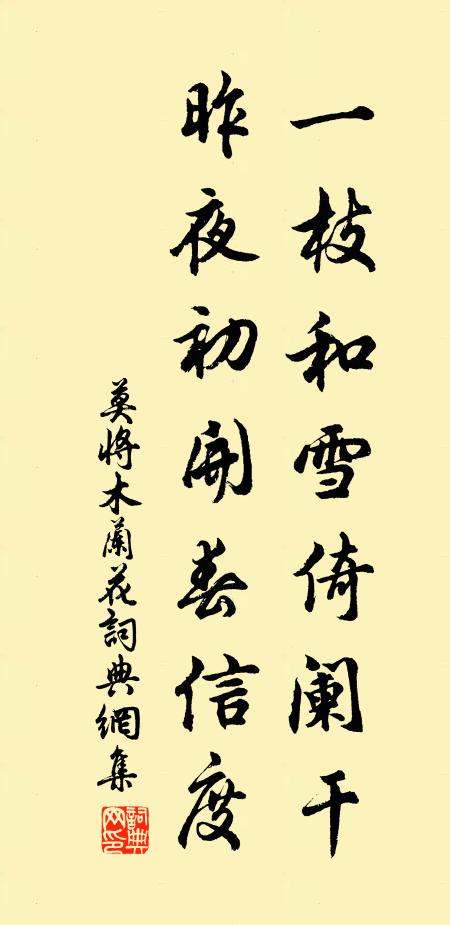 一枝和雪倚闌干
昨夜初開春信度
莫將木蘭花詞典網集
詞典網印